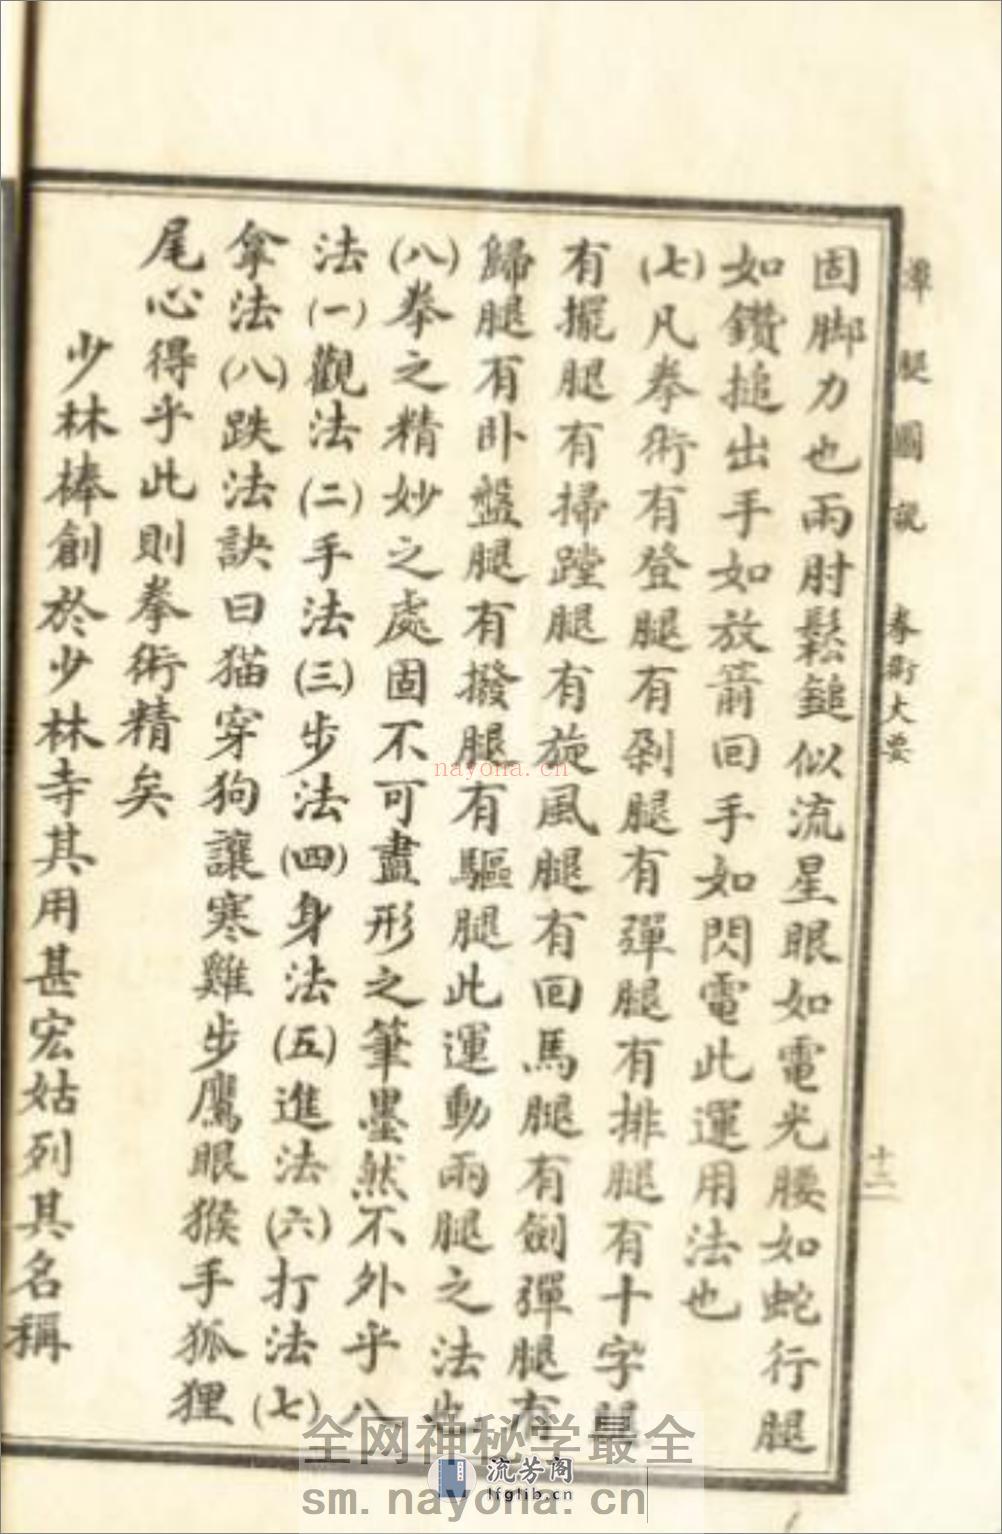 潭腿圖說　拳術大要　十二
固脚力也兩肘鬆鎚似流星眼如電光腰如蛇行腿
如鑽搥出手如放箭回手如閃電此運用法也
(七)凡拳術有登腿有剁腿有彈腿有排腿有十字腿
有擺腿有掃蹚腿有旋風腿有回馬腿有劍彈腿有
歸腿有卧盤腿有撥腿有驅腿此運動兩腿之法也
(八)拳之精妙之處固不可盡形之筆墨然不外乎八
法(一)觀法(二)手法(三)步法(四)身法(五)進法(六)打法(七)
拿法(八)跌法訣曰猫穿狗讓寒雞步鷹眼猴手狐狸
尾心得乎此則拳術精矣
少林棒創於少林寺其用甚宏姑列其名稱
nayona.cn
全网神秘学最全
流芳阁
lfglib.cn
sm.nayona.cn